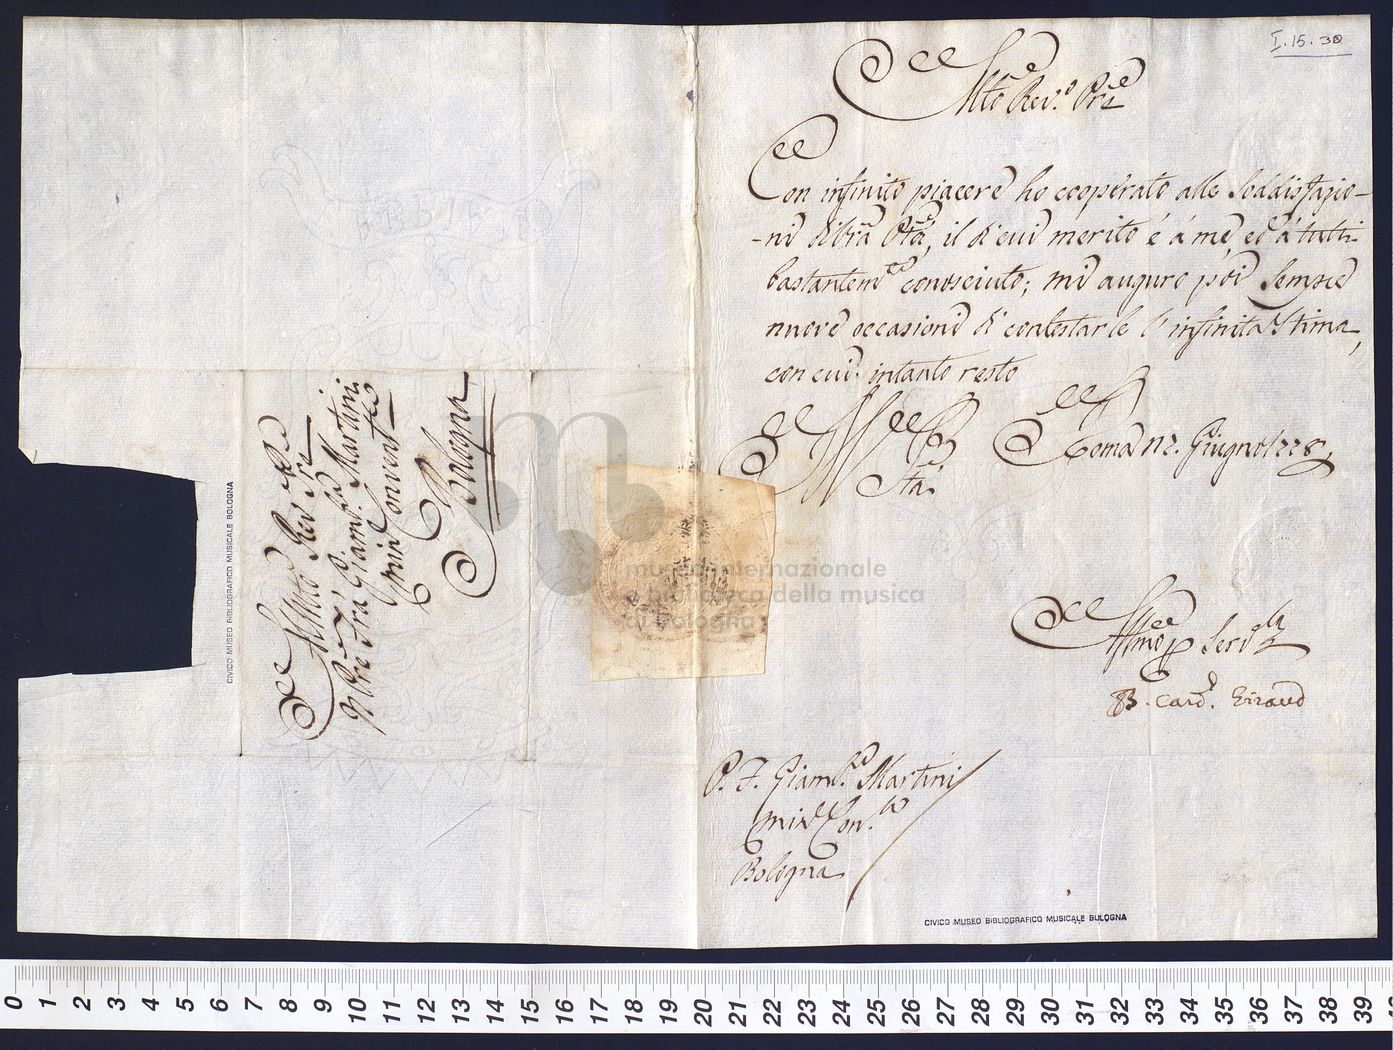 I.15.30
Mto Rev.o Pre
Con infinito piacere ho cooperato alle Soddisfazio-
-ni di Vra Pta, il di cui merito é á me, ed á tutti
bastantem.te conosciuto; mi auguro poi Sempre
nuove occasioni di contestarle l'infinita Stima,
con cui intanto resto
Di V.
Pta
Roma 17. Giugno 1778.
Affmo p Servirla
B. Card. Giraud
P. F. Giamb.a Martini
Min. Conv.le
Bologna
CIVICO MUSEO BIBLIOGRAFICO MUSICALE BOLOGNA
Al Molto Rev Pre
Il Pre Fra Giamb.a Martini
Min Conventle
Bologna
CIVICO MUSEO BIBLIOGRAFICO MUSICALE BOLOGNA
museo internazionale
e biblioteca della musica
di bologna
0 1 2 3 4 5 6 7 8 9 10 11 12 13 14 15 16 17 18 19 20 21 22 23 24 25 26 27 28 29 30 31 32 33 34 35 36 37 38 39